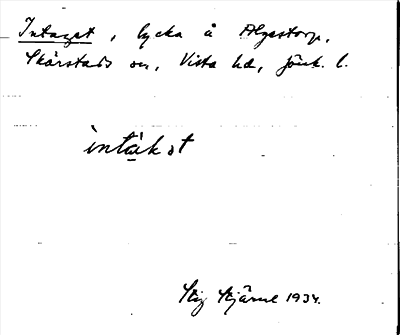 Intaget, lycka å Algestorp,
Skärstads sn, Vista hd, Jönk. l.
intākət
Stig Stjärne 1934.